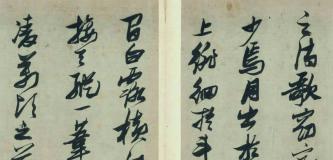 之詩歌窈
少焉月出於
上徘徊於斗
間白露橫
接天縱一葦
凌萬頃之